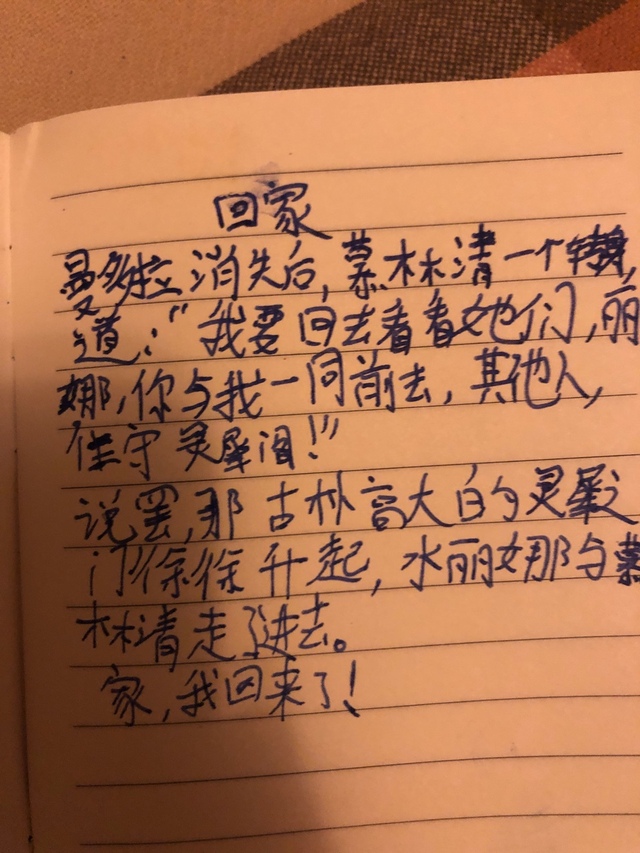 回家
曼多拉消失后,慕林清一个转身,
道:"我要回去看看她们,丽
娜,你与我一同前去,其他人,
守灵犀阁!"
说罢,那古朴高大的灵
门徐徐升起,水丽娜与慕
林清走了进去。
家,我回来了!